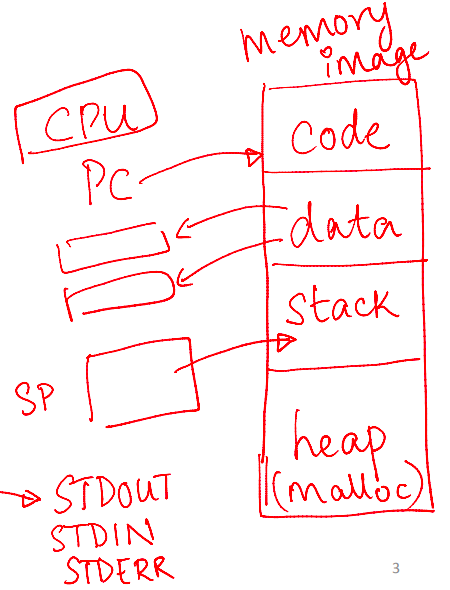 memory
image
CPU
code
PC
data
stack
SP
heap
(malloc)
STDOUT
STDIN
STDERR
3